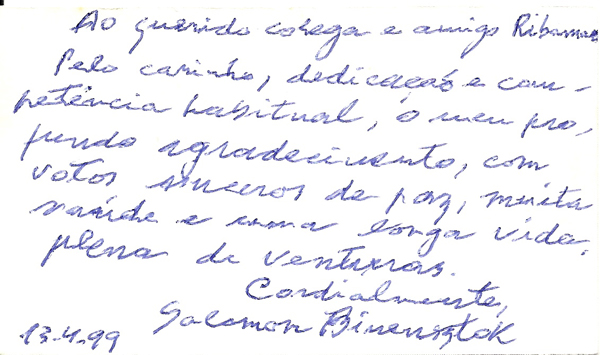 Ao querido colega e amigo Ribamar
Pelo carinho, dedicação e com-
petência habitual, o meu pro-
fundo agradecimento, com
votos sinceros de paz, muita
saúde e uma longa vida,
plena de venturas.
Cordialmente,
Salomon Binensztok
13.4.99